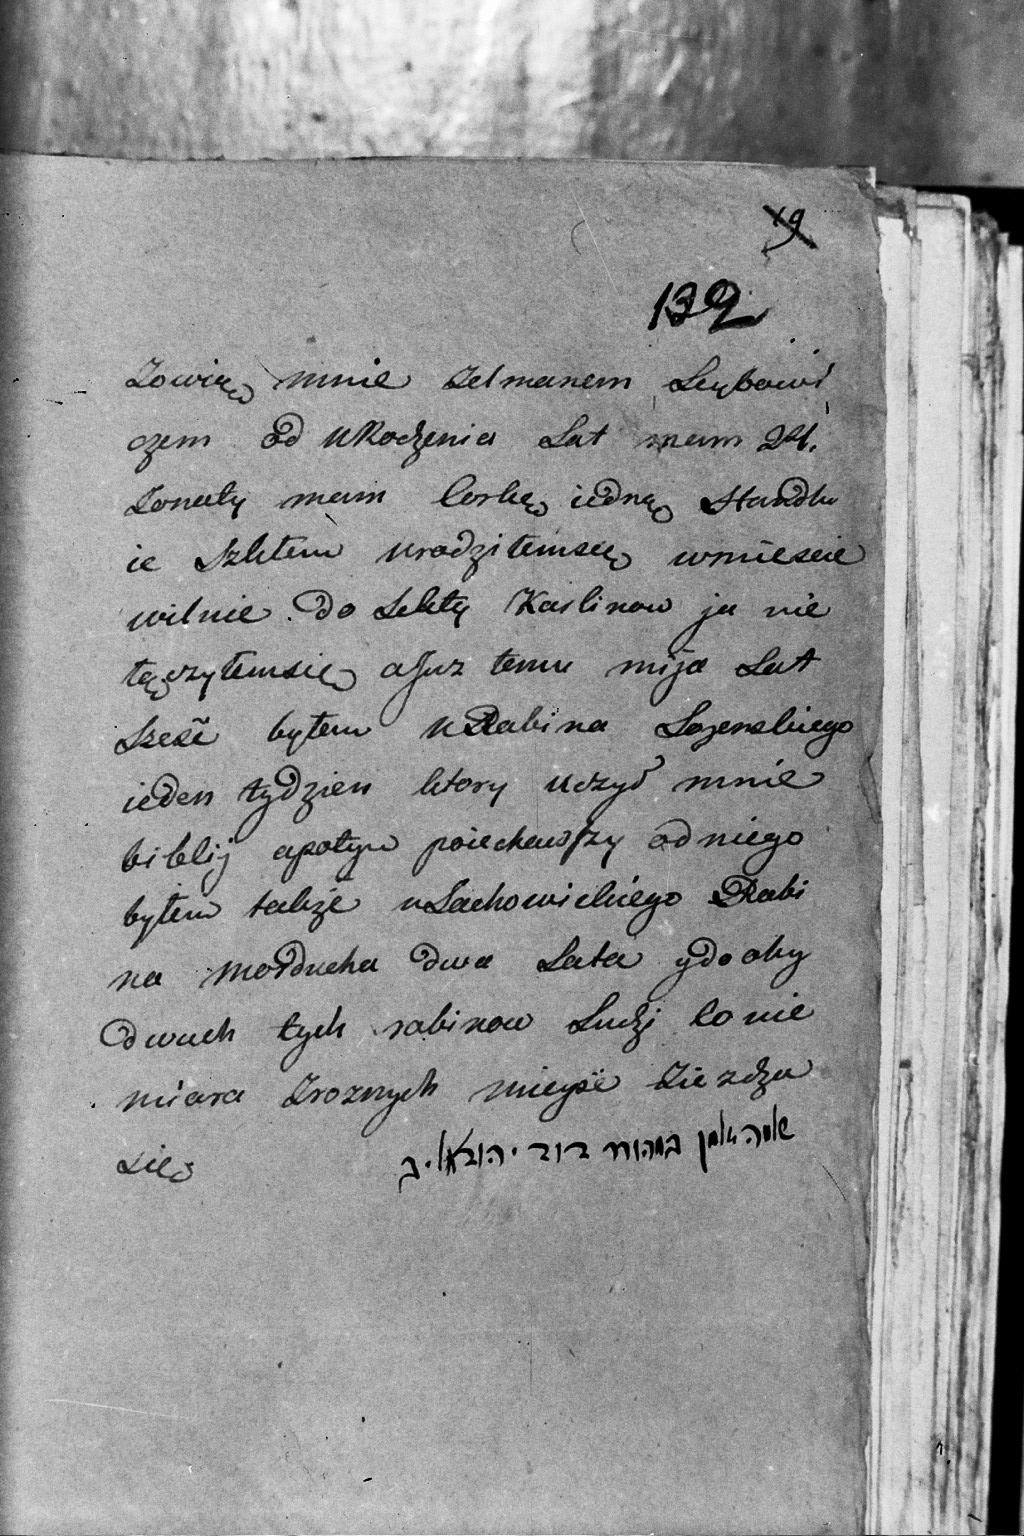 19
132
Zowią mnie Zelmanem Leybowi
czem od urodzenia Lat mam 24.
Zonaty mam Corkę iednę Handlu
ie Szkłem urodziłemsię wmiescie
wilnie. Do Sekty Karlinow ja nie
łączyłemsię a Juz temu mija Lat
Szesć byłem u Rabina
ieden tydzien ktory uczył mnie
biblij apotym poiechawszy odniego
byłem takze uLachowickiego Rabi
na Morducha dwa Lata ydo oby
dwuch tych rabinow Ludzi co nie
miara Zroznych mieysc Ziezdza
Się